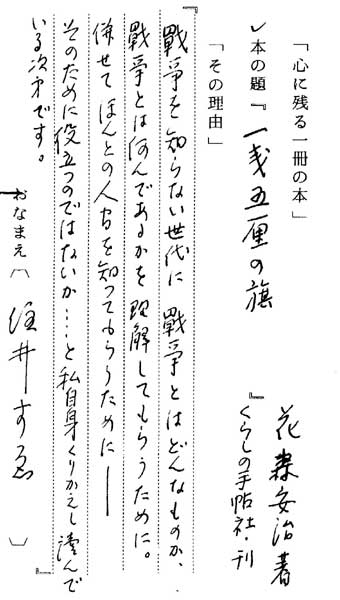 「心に残る一冊の本」
✓本の題『一戔五厘の旗』
花森安治著
くらしの手帖社・刊
「その理由」
『戰爭を知らない世代に 戰爭とはどんなものか、
戰爭とは何んであるかを理解してもらうために。
併せてほんとの人間を知ってもらうために──
そのために役立つのではないか…と私自身くりかえし讀んで
いる次第です。』
おなまえ（住井すゑ）